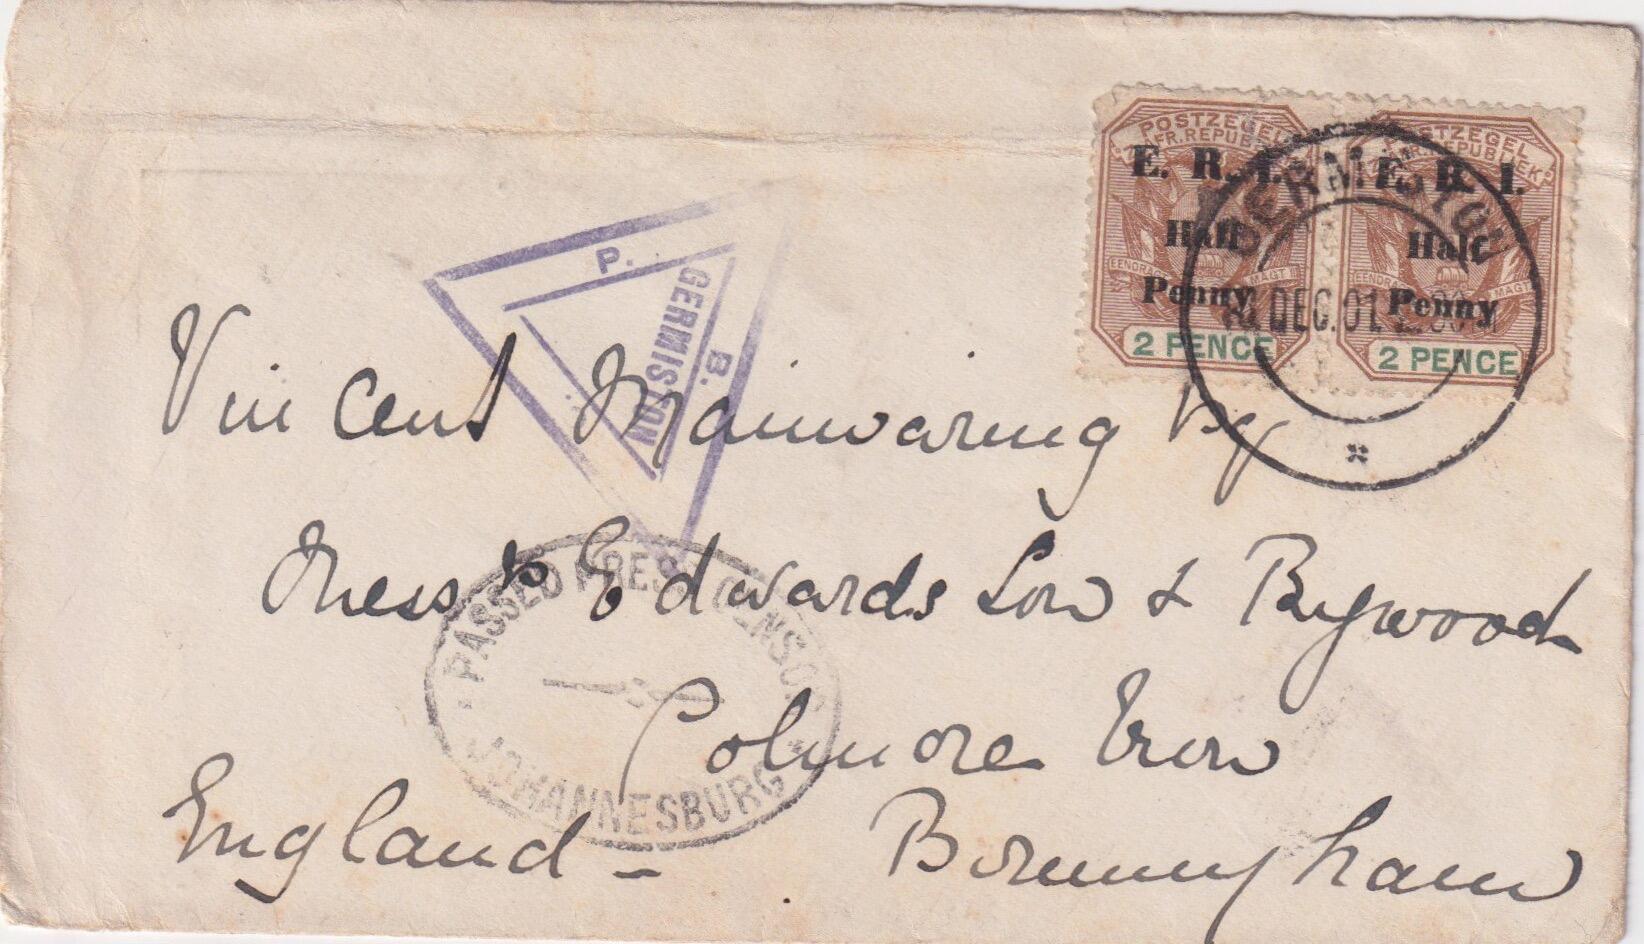 POSTZEGEL POSTZEGEL
AFR. REPUBLIEK
E. R. I. E. R. I.
Half Half
Penny Penny
EENDRAGT MAGT EENDRAGT MAGT
2 PENCE 2 PENCE
GERMISTON
DEC. 01
P. B.
GERMISTON
Vincent Mainwaring Esq
Messrs Edwards Son & Bigwood
Colmore Row
Birmingham
England -
PASSED PRESS CENSOR
JOHANNESBURG